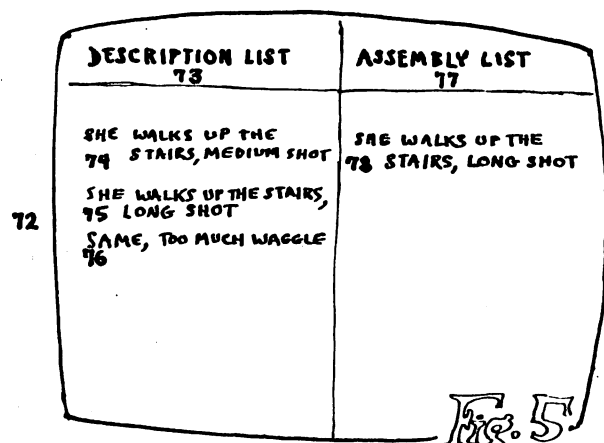 DESCRIPTION LIST
73
SHE WALKS UP THE
74 STAIRS, MEDIUM SHOT
SHE WALKS UP THE STAIRS,
75 LONG SHOT
SAME, TOO MUCH WAGGLE
76
ASSEMBLY LIST
77
SHE WALKS UP THE
78 STAIRS, LONG SHOT
72
Fig. 5